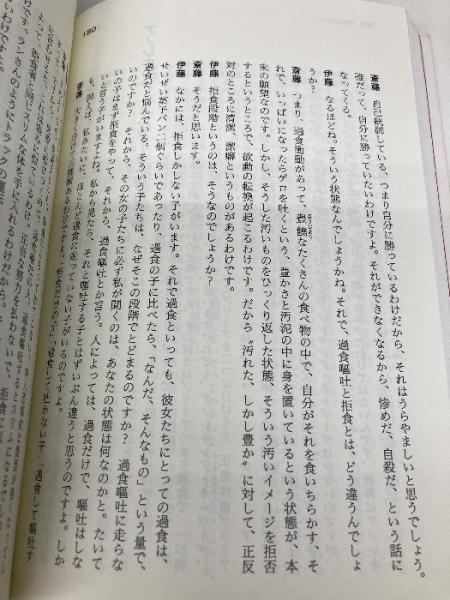 180
斎藤　自己統制している、つまり自分に勝っているわけだから、それはうらやましいと思うでしょう。
誰だって、自分に勝っていたいわけですよ。それができなくなるから、惨めだ、自殺だ、という話に
なってくる。
伊藤　なるほどね。そういう状態なんでしょうかね。それで、過食嘔吐と拒食とは、どう違うんでしょ
うか?
斎藤　つまり、過食衝動があって、豊饒なたくさんの食べ物の中で、自分がそれを食いちらかす、そ
れで、いっぱいになったらゲロを吐くという、豊かさと汚泥の中に身を置いているという状態が、本
来の願望なのです。しかし、そうした汚いものをひっくり返した状態、そういう汚いイメージを拒否
するというところで、欲動の転換が起こるわけです。だから〝汚れた、しかし豊か〟に対して、正反
対のところに清潔、潔癖というものがあるわけです。
伊藤　拒食段階というのは、そうなのでしょうか?
斎藤　そうだと思います。
伊藤　なかには、拒食しかしない子がいます。それで過食といっても、彼女たちにとっての過食は、
せいぜい菓子パン二個ぐらいであったり、過食の子に比べたら、「なんだ、そんなもの」という量で、
過食だと悩んでいる。そういう子たちは、なぜそこの段階でとどまるのですか?　過食嘔吐に走らな
いのですか?　それから、その女の子たちに必ず私が聞くのは、あなたの状態は何なのかと。たいて
いの子はまず拒食をやって、それから、過食嘔吐とか言う。人によっては、過食だけで、嘔吐はしな
いと言う子がいますよね。私から見たら、それと嘔吐する子とはずいぶん違うと思うのですよ。しか
も、例えば、私みたいに、ほとんど過食に走っていない子がいるのですよ。